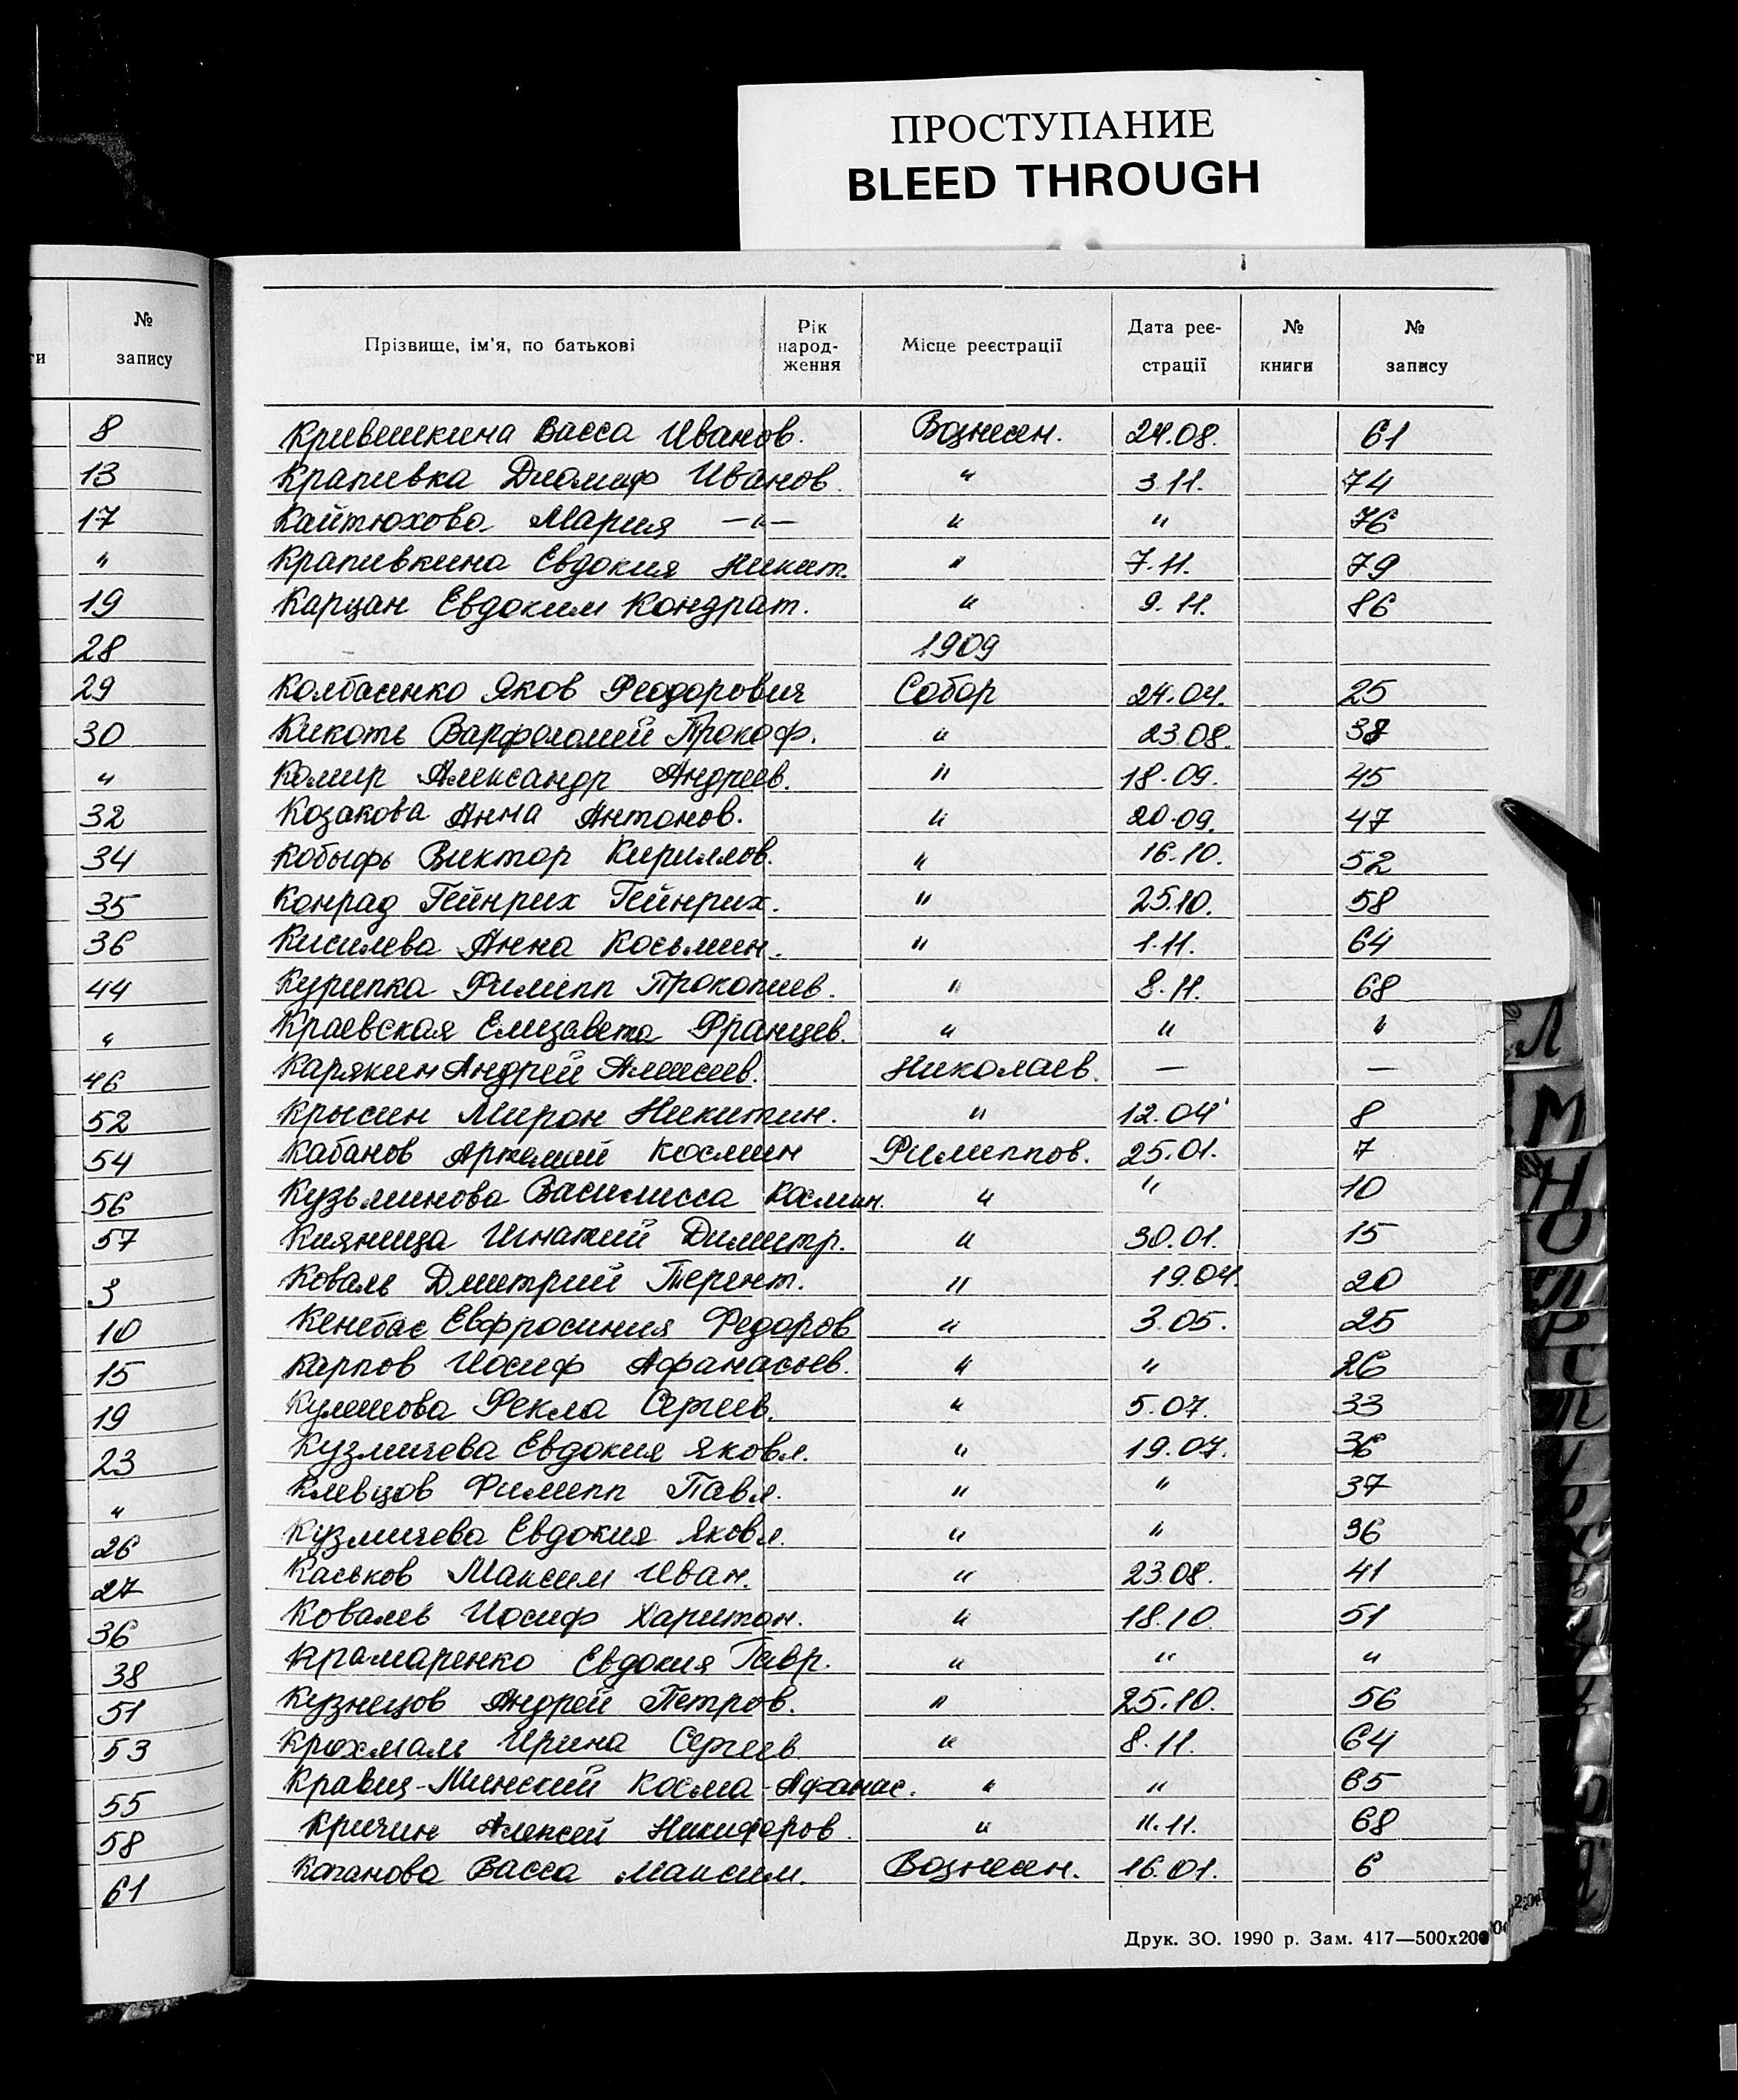 ПРОСТУПАНИЕ
BLEED THROUGH
№ запису
8
13
17
"
19
28
29
30
"
32
34
35
36
44
"
46
52
54
56
57
3
10
15
19
23
"
26
27
36
38
51
53
55
58
61
Прізвище, ім'я, по батькові Рік народження Місце реєстрації Дата реєстрації № книги № запису
Кривешкина Васса Иванов. Вознесен. 24.08. 61
Крапивка Диомиф Иванов. " 3.11. 74
Кайтюхова Мария —"— " " 76
Крапивкина Евдокия Никит. " 7.11. 79
Карцан Евдоким Кондрат. " 9.11. 86
1909
Колбасенко Яков Феодоровия Собор 24.04. 25
Кикоть Варфоломей Прокоф. " 23.08. 38
Комир Александр Андреев. " 18.09. 45
Козакова Анна Антонов. " 20.09. 47
Кобыфь Виктор Кириллов. " 16.10. 52
Конрад Гейнрих Гейнрих. " 25.10. 58
Кисилева Анна Косьмин. " 1.11. 64
Курипка Филипп Прокопиев. " 8.11. 68
Краевская Елизавета Францев. " " "
Карякин Андрей Алексеев. Николаев. — —
Крысин Мирон Никитин. " 12.04 8
Кабанов Артемий Космин Филиппов. 25.01. 7
Кузьминова Василисса Космин. " " 10
Кияница Игнатий Димитр. " 30.01. 15
Коваль Дмитрий Терент. " 19.04. 20
Кенебас Евфросиния Федоров " 3.05. 25
Карпов Иосиф Афанасьев. " " 26
Кулешова Фекла Сергеев. " 5.07. 33
Кузмичева Евдокия Яковл. " 19.07. 36
Клевцов Филипп Павл. " " 37
Кузмичева Евдокия Яковл. " " 36
Каськов Максим Иван. " 23.08. 41
Ковалев Иосиф Харитон. " 18.10. 51
Крамаренко Евдокия Гавр. " " "
Кузнецов Андрей Петров. " 25.10. 56
Крохмаль Ирина Сергеев. " 8.11. 64
Кравец-Минский Косма Афанас. " " 65
Кричин Алексей Никифоров. " 11.11. 68
Каганова Васса Максим. Вознесен. 16.01. 6
Друк. ЗО. 1990 р. Зам. 417—500х200
Л
М
Н
О
П
Р
С
Т